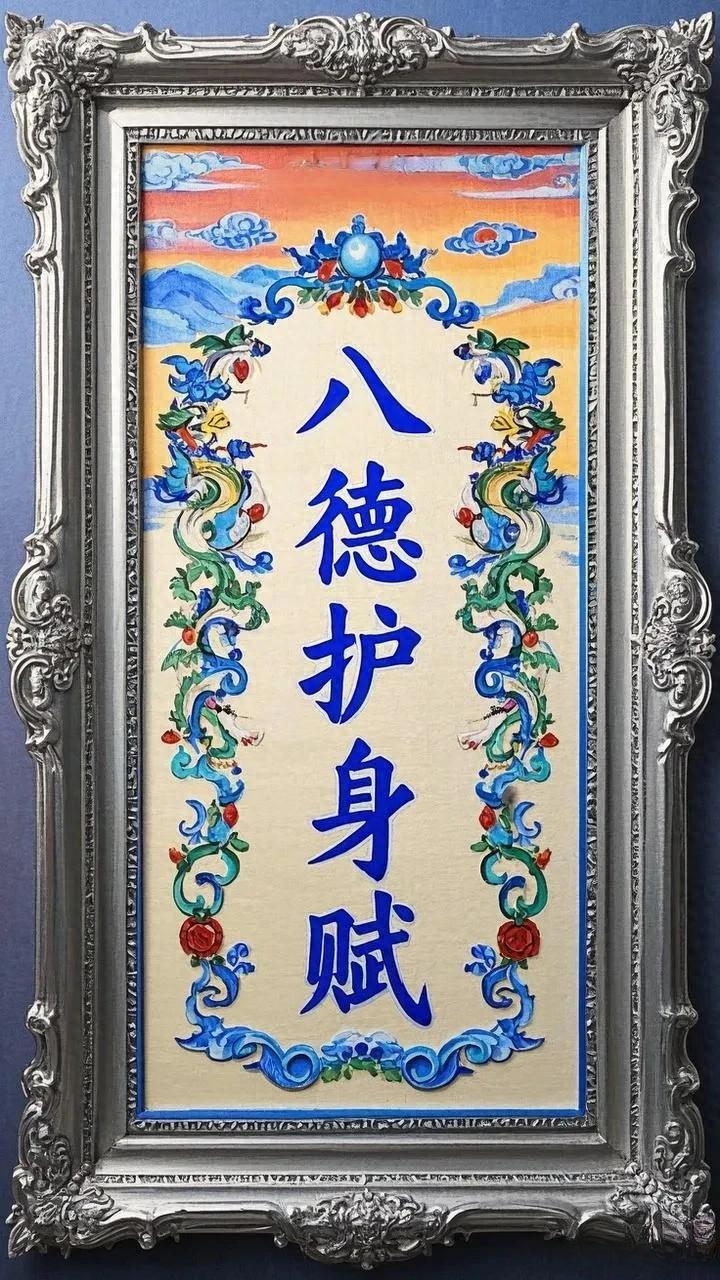 八德护身赋